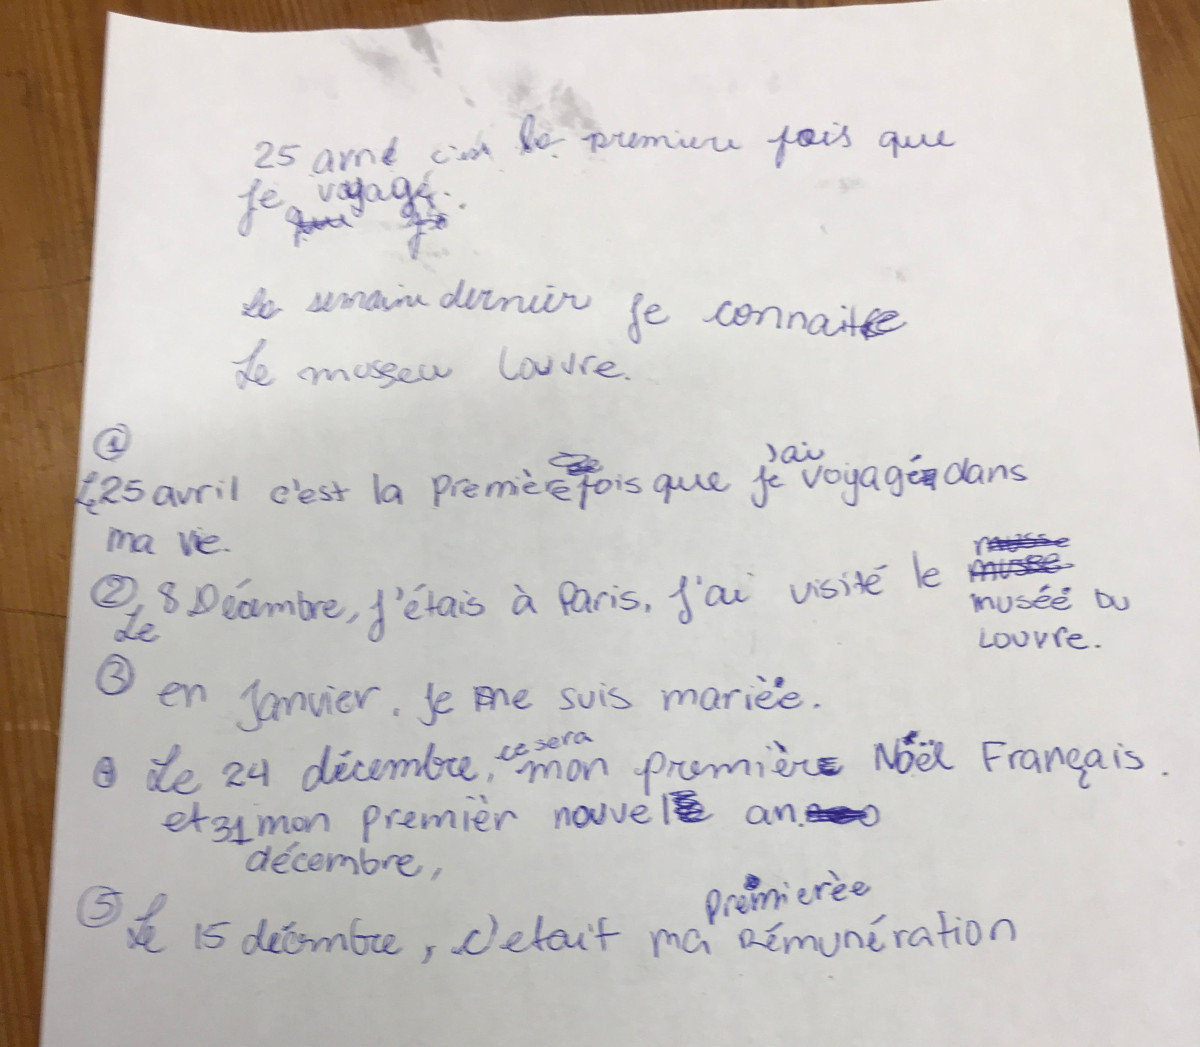 25 avril c'est la premiere fois que
je voyagé.
Le semaine dernier je connaitre
Le musseu Louvre.
①
Le 25 avril c'est la première fois que j'ai voyagé dans
ma vie.
② Le 8 Décembre, j'étais à Paris. J'ai visité le musée DU
Louvre.
③ en Janvier. Je me suis mariée.
④ Le 24 décembre, ce sera mon premièr Noël Français.
et 31 décembre, mon premièr nouvel an.
⑤ Le 15 décembre, c'etait ma premierèe Rémunération